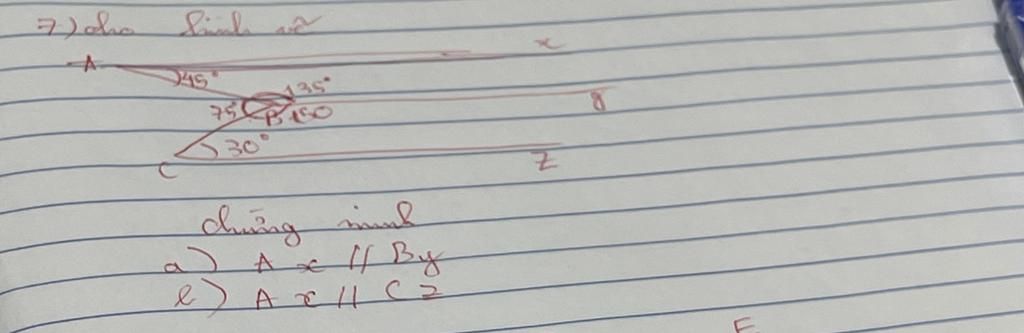 7) cho hình vẽ
A x
45°
135°
75° B 150 y
30°
C z
chứng minh
a) Ax // By
b) Ax // Cz
E